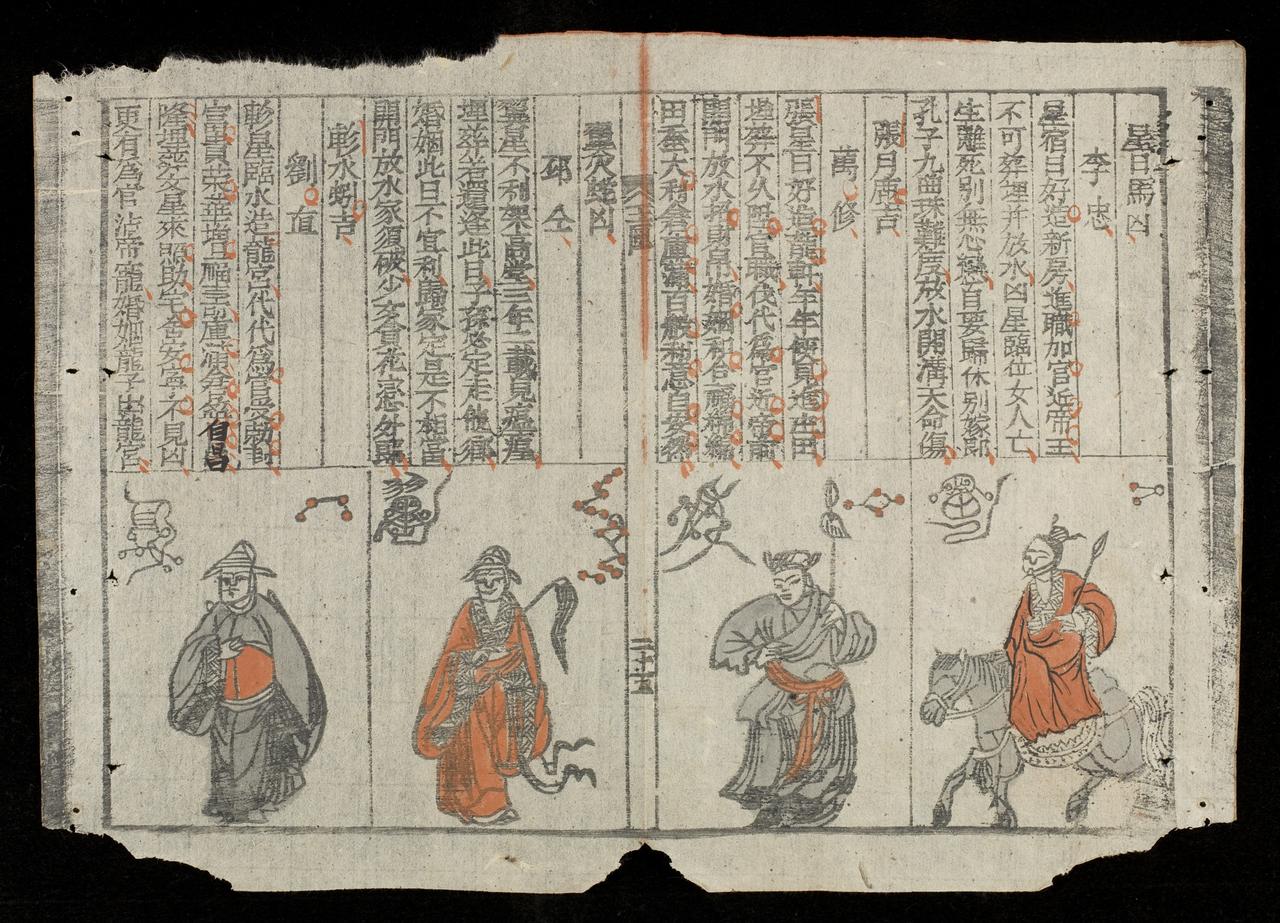 星日馬凶
李忠
星宿日好造新房進職加官近帝王
不可葬埋并放水凶星臨位女人亡
生離死别無心戀自要歸休别嫁郎
孔子九曲珠難度放水開溝天命傷
張月鹿吉
萬修
張星日好造龍軒年年便見進庄田
埋葬不久陞官職代代為官近帝前
開門放水招財帛婚姻和合福綿綿
田蚕大利倉庫滿百般利意自安然
翼火蛇凶
邳仝
翼星不利架高堂三年二載見瘟
埋葬若還逢此日子孫必定走他鄉
婚姻此日不宜利歸家定是不相當
開門放水家須破少女貪花戀外郎
二十五
軫水蚓吉
劉直
軫星臨水造龍宮代代為官受勅封
富貴榮華增福壽庫滿倉盈自昌
隆埋葬文星來照助宅舍安寧不見凶
更有為官沾帝寵婚姻龍子出龍宮